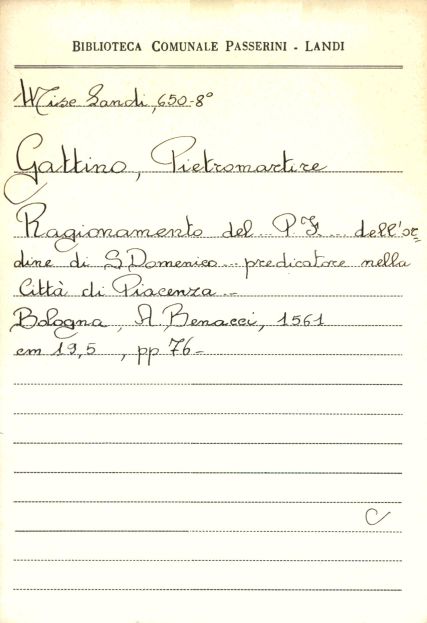 BIBLIOTECA COMUNALE PASSERINI - LANDI
Misc Landi, 650-8°
Gattino, Pietromartire
Ragionamento del... P. F. ... dell'or=
dine di S. Domenico... predicatore nella
Città di Piacenza...
Bologna, A. Benacci, 1561
cm 19,5 , pp 76-
C